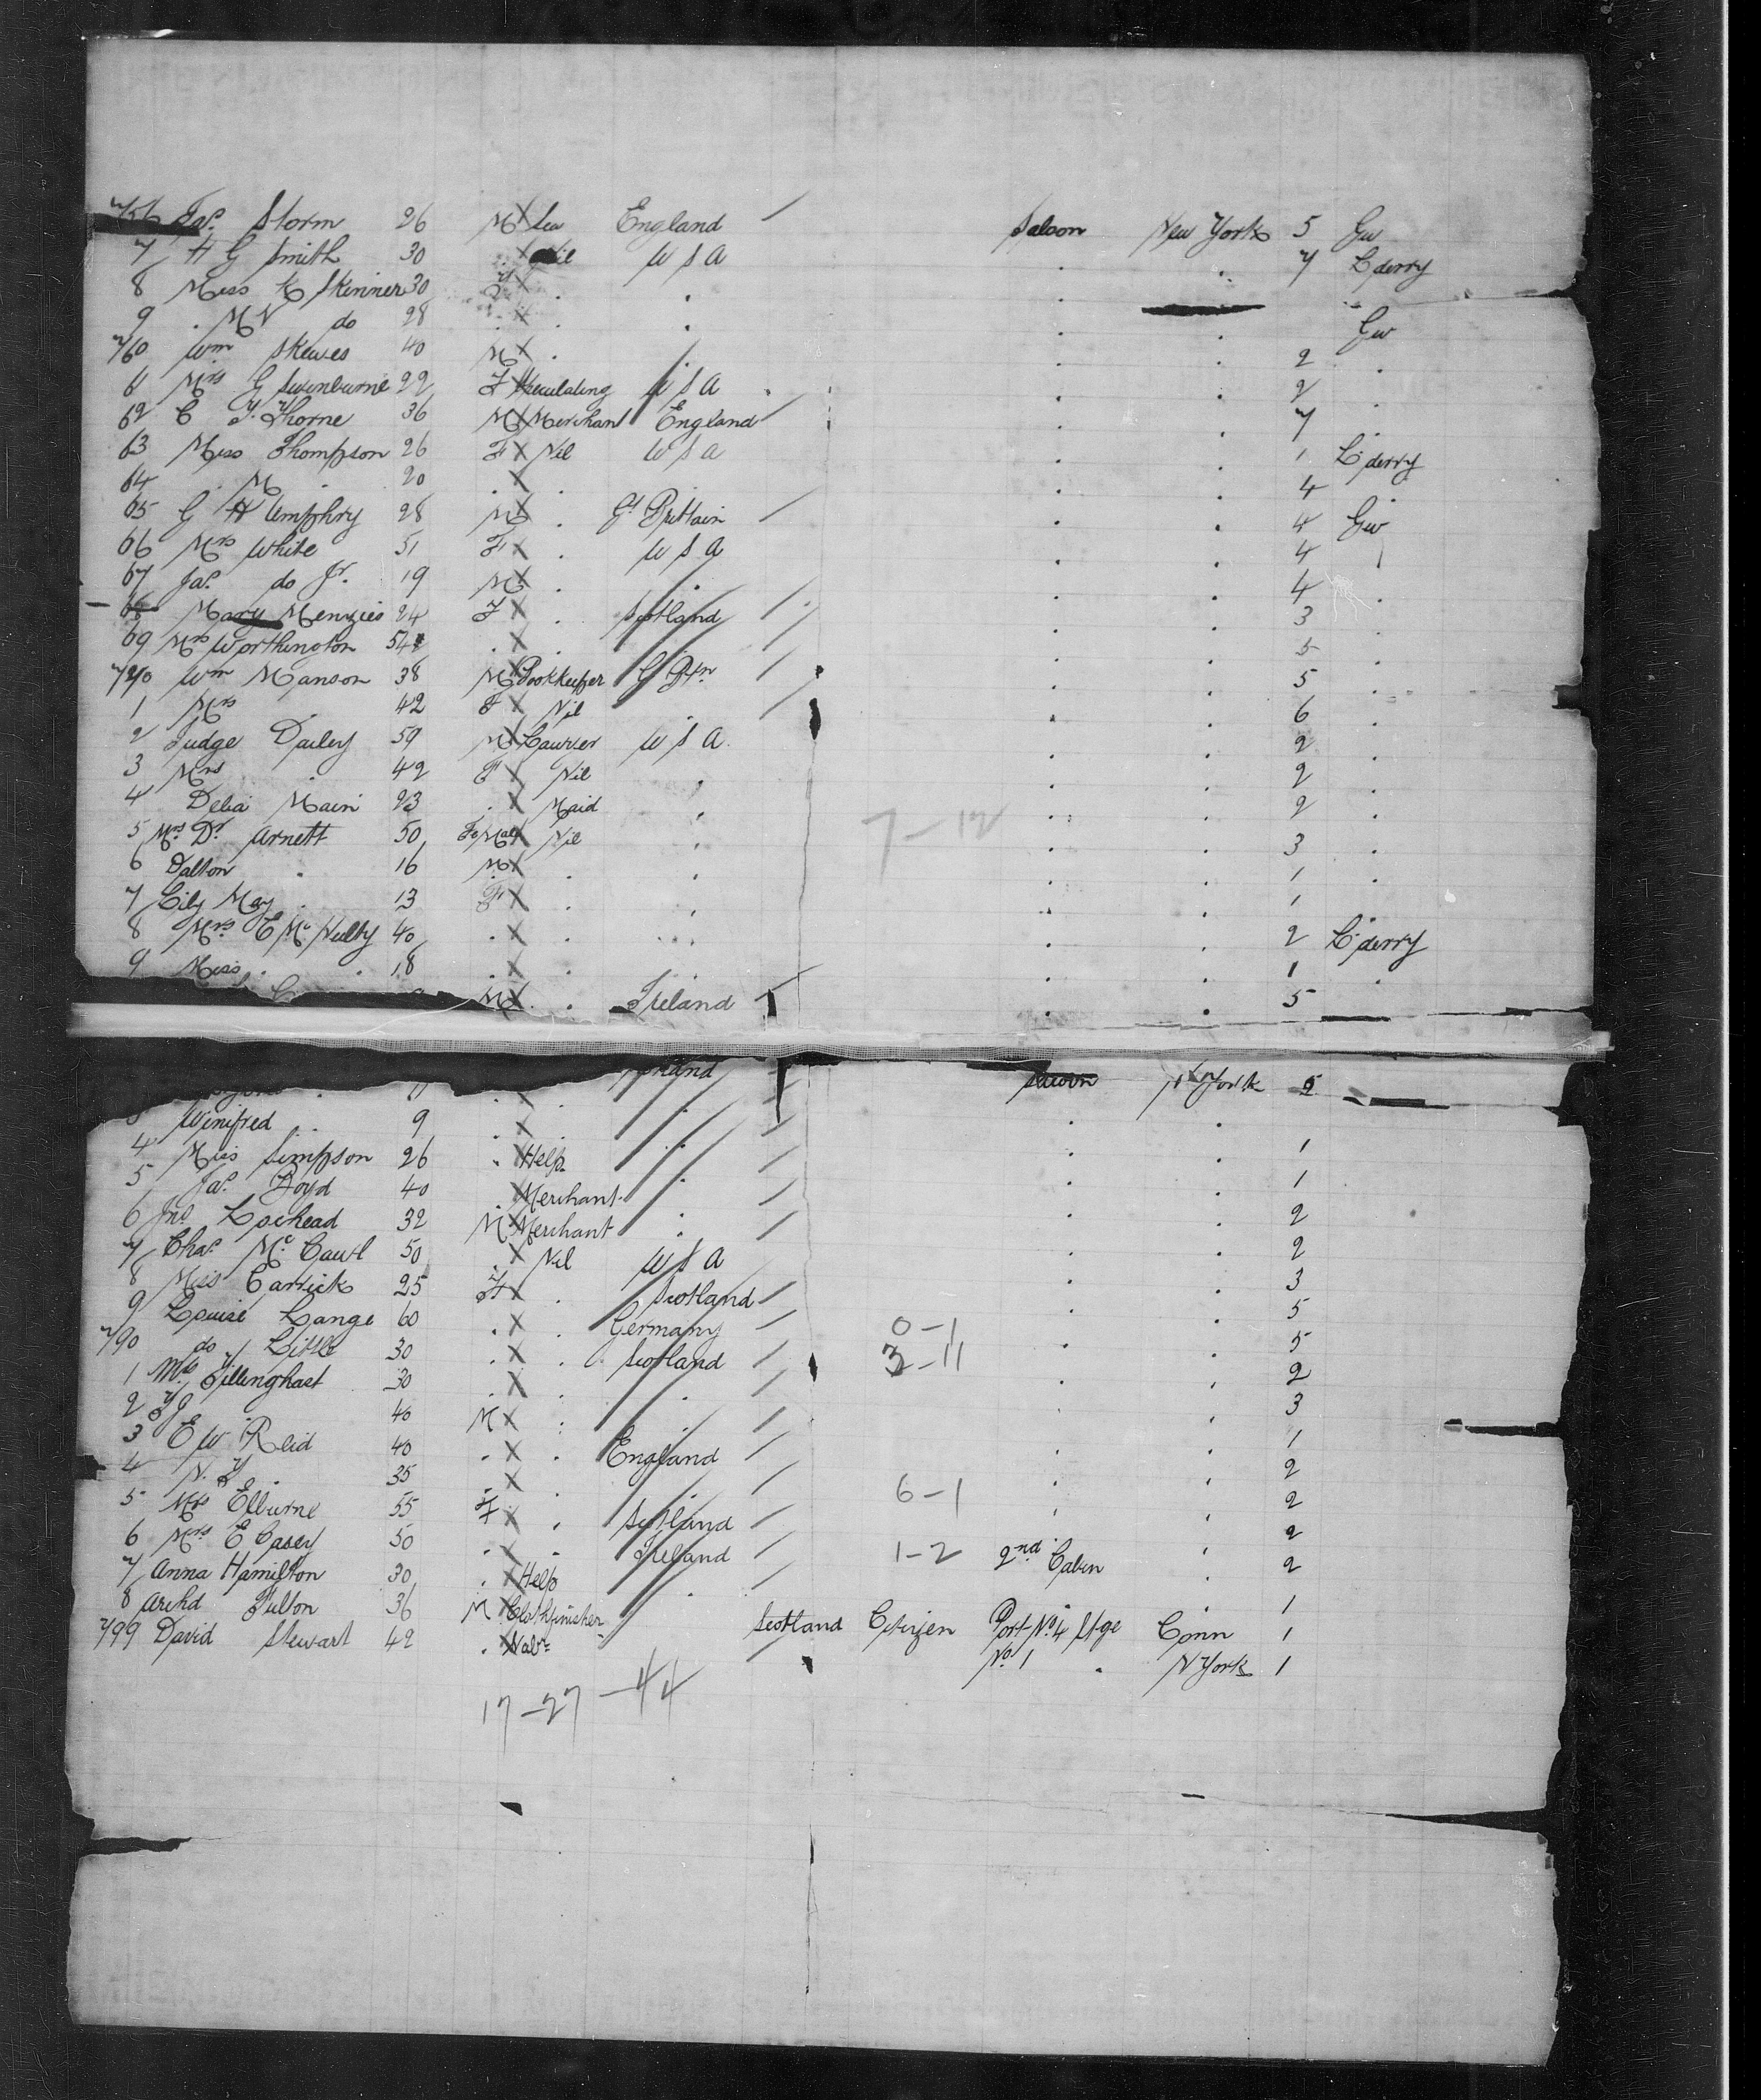 756 Jas. Storm 26 M X Sea England / Saloon New York 5 Gw
7 H G Smith 30 . X Nil U S A . . 7 L'derry
8 Miss K Skinner 30 F X . . . .
9 . M N do 28 . X . . . . Gw
760 Wm Skewes 40 M X . . . . 2 .
61 Mrs G Swinburne 22 F X Speculating U S A . . 2 .
62 C T. Thorne 36 M X Merchant England / . . 7 .
63 Miss Thompson 26 F X Nil U S A . . 1 L'derry
64 . M . 20 . X . . . 4
65 G H Umphry 28 M X . Gt Brittain / . . 4 Gw
66 Mrs White 51 F X . U S A . . 4
67 Jas. do Jr. 19 M X . . . . 4 .
68 Mary Menzies 24 F X . Scotland / . . 3 .
69 Mrs Worthington 54 . X . . / . . 5 .
770 Wm Manson 38 M X Bookkeeper G Btn / . . 5 .
1 Mrs . 42 F X Nil . / . . 6 .
2 Judge Dailey 59 M X Lawyer U S A . . 2 .
3 Mrs . 42 F X Nil . . . 2 .
4 Delia Main 23 . X Maid . . . 2 .
5 Mrs Dr. Arnett 50 FeMale X Nil . 7-12 . . 3 .
6 Dalton . 16 M X . . . . 1 .
7 Lily May . 13 F X . . . . 1 .
8 Mrs E McNulty 40 . X . . . . 2 L'derry
9 Miss . . 18 . X . . . 1 .
M X . Ireland / . . 5
11 . X . Saloon N York 5
Winifred . 9 . X . . / . .
4 Miss Simpson 26 . X Help . / . . 1
5 Jas. Boyd 40 . X Merchant . / . . 1
6 Jno Lochead 32 M X Merchant . / . . 2
7 Chas. Mc. Cawl 50 . X Nil U S A . . 2
8 Miss Carrick 25 F X . Scotland / . . 3
9 Louise Lange 60 . X . Germany / 0-1 . . 5
790 do Little 30 . X . Scotland / 3-11 . . 5
1 Mrs Tillinghast 30 . X . . / . . 2
2 F J . 40 M X . . / . . 3
3 E W Reid 40 . X . England / . . 1
4 N. F . 35 . X . / . . 2
5 Mrs Elburne 55 F X . Scotland / 6-1 . . 2
6 Mrs E Casey 50 . X . Ireland / 1-2 2nd Cabin . 2
7 Anna Hamilton 30 . X Help . / . 2
8 Archd Fulton 36 M X Clothfinisher Scotland Citizen Port No. 4 Stge Conn 1
799 David Stewart 42 . X No. 1 . N York 1
17-27-44